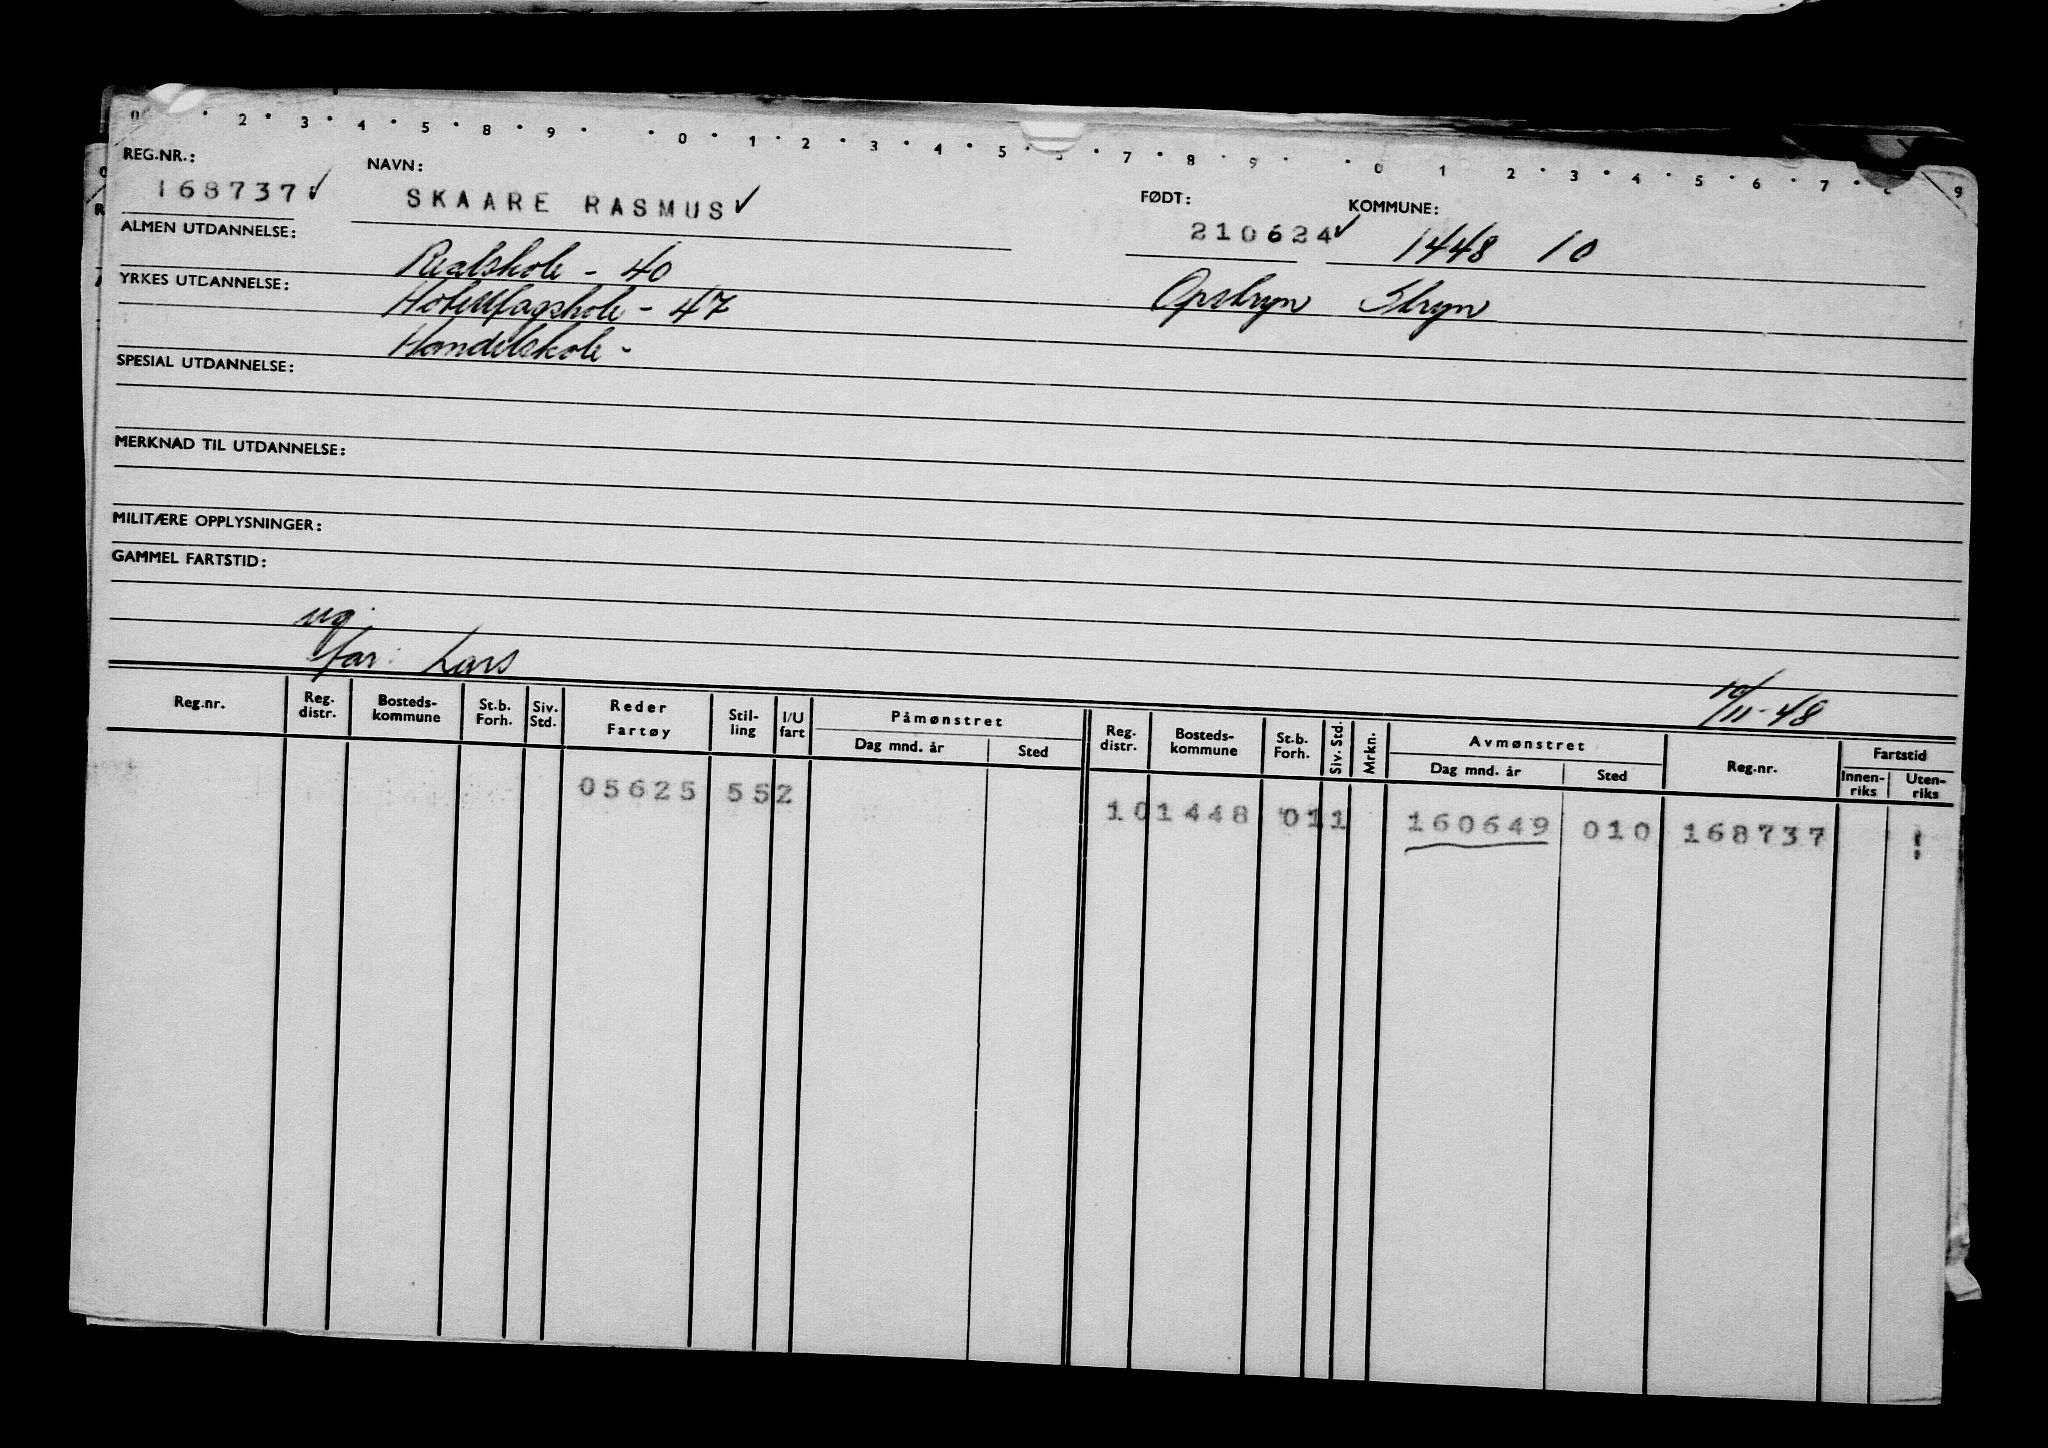 0 · 2 · 3 · 4 · 5 · 8 · 9 · · 0 · 1 · 2 · 3 · 4 · 5 · 7 · 8 · 9 · · 0 1 2 · 3 · 4 · 5 · 6 · 7 · 9
REG.NR.: NAVN: FØDT: KOMMUNE:
168737 ✓ SKAARE RASMUS ✓ 210624 ✓ 1448 10
ALMEN UTDANNELSE: Realskole - 40
YRKES UTDANNELSE: Hotellfagskole - 47 Opstryn Stryn
Handelskole -
SPESIAL UTDANNELSE:
MERKNAD TIL UTDANNELSE:
MILITÆRE OPPLYSNINGER:
GAMMEL FARTSTID:
ug.
far: Lars
10/11-48
Reg.nr. Reg. distr. Bosteds-kommune St.b. Forh. Siv. Std. Reder Fartøy Stil-ling I/U fart Påmønstret Dag mnd. år Sted Reg. distr. Bosteds-kommune St.b. Forh. Siv. Std. Mrkn. Avmønstret Dag mnd. år Sted Reg.nr. Fartstid Innen-riks Uten-riks
05625 552 101448 011 160649 010 168737